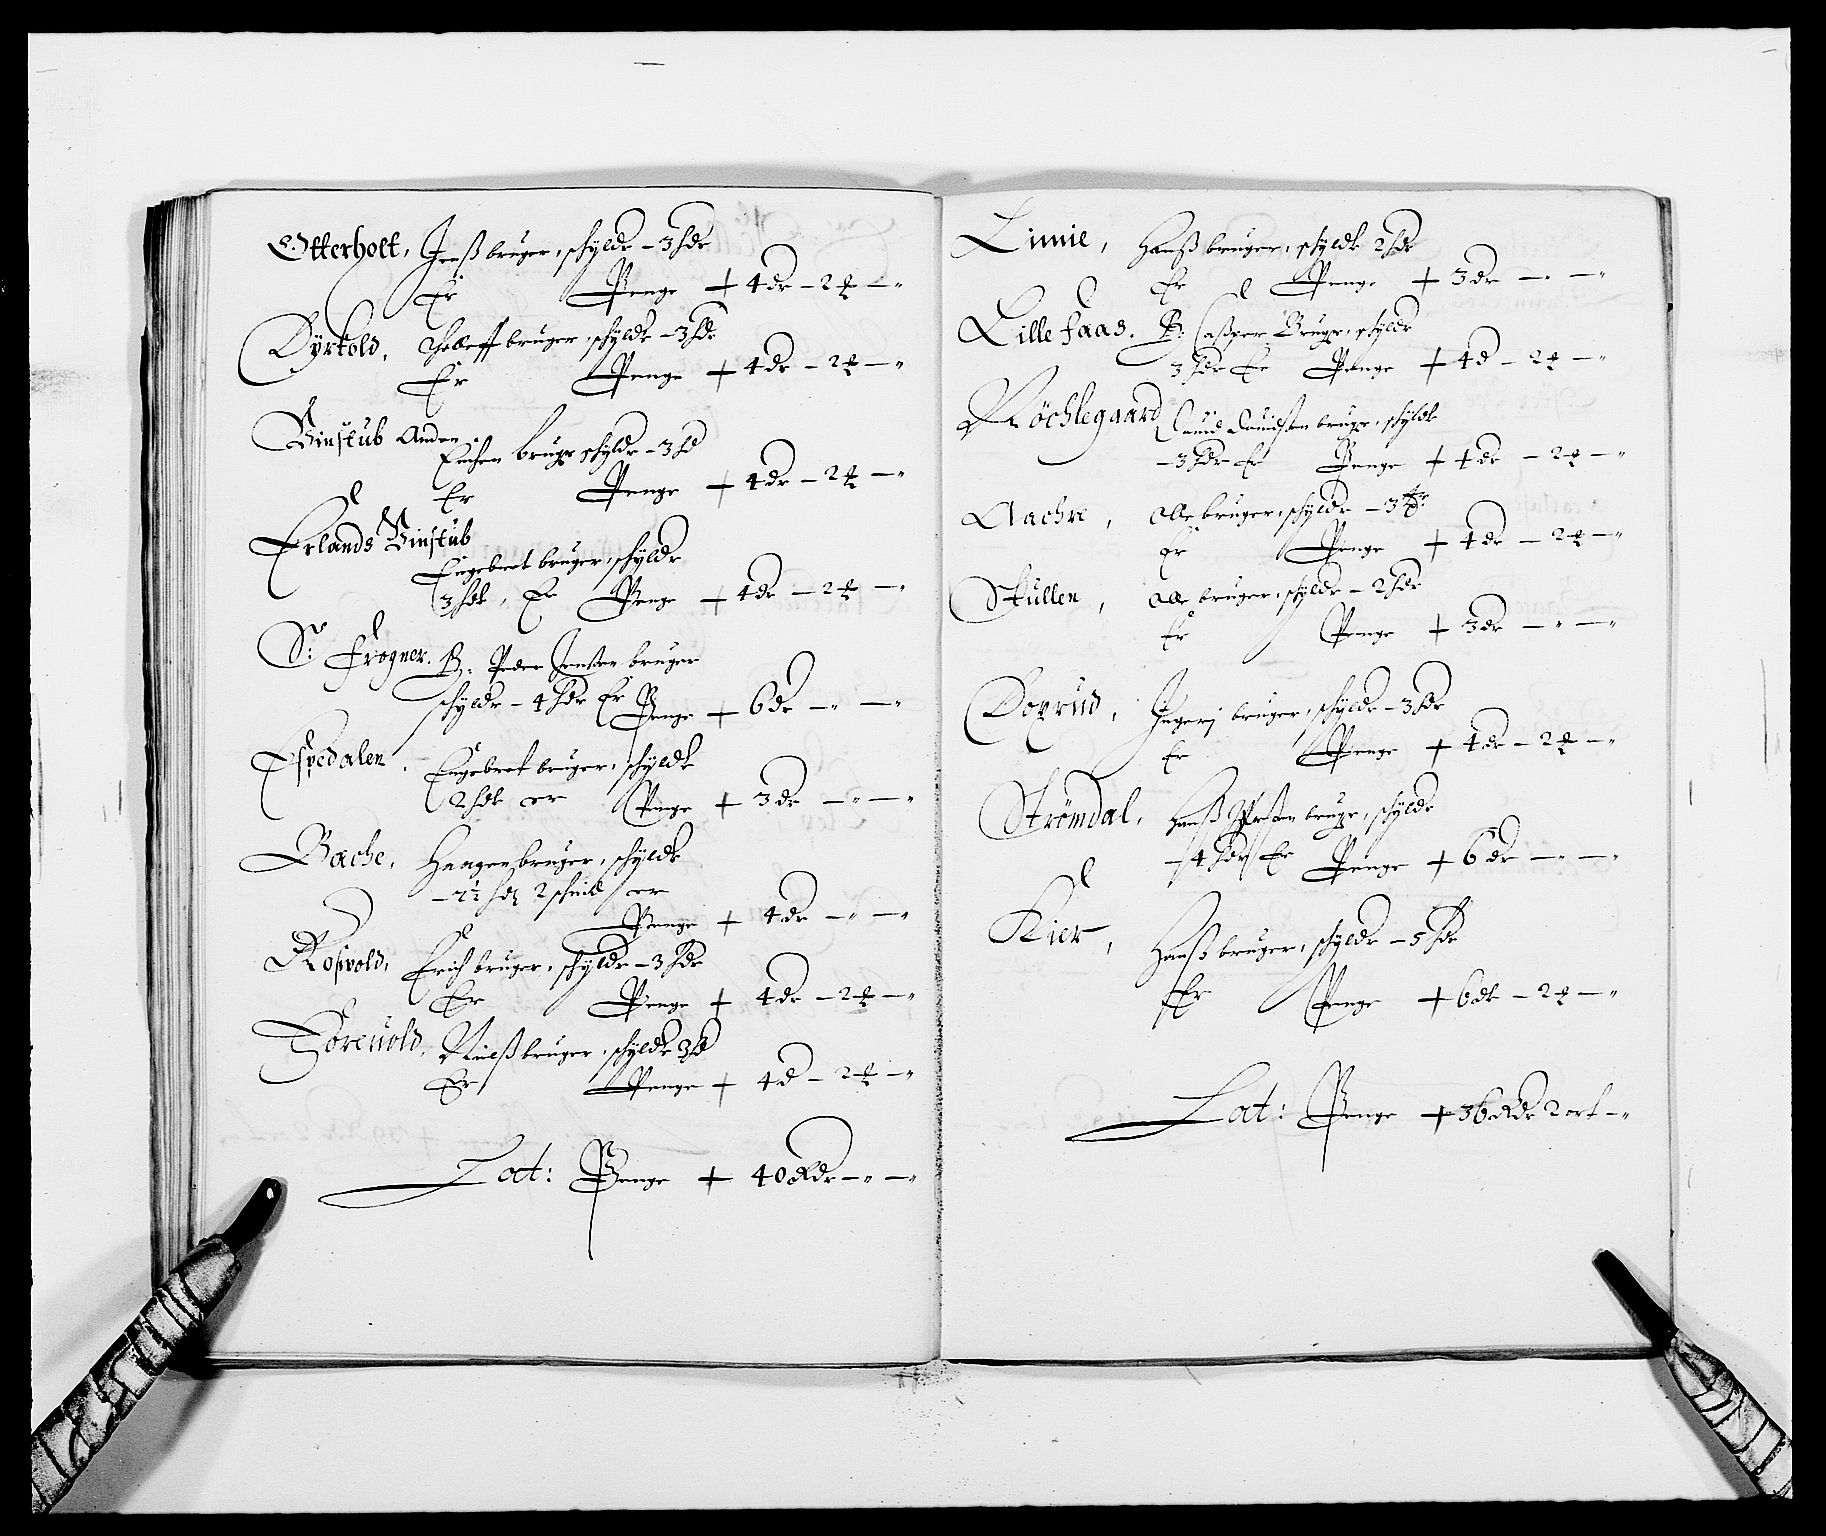 Otterholt, Jenß bruger, schyldr – 3 hdr
Er Penge + 4 dr – 2 ꝝ – "
Dyrkold, Tolleff bruger, schyldr – 3 hdr
Er Penge + 4 dr – 2 ꝝ – "
Binstub Anden
bruger schyldr – 3 hd
Er Penge + 4 dr – 2 ꝝ – "
Erlands Binstub
Engebret bruger, schyldr
3 hdr, Er Penge + 4 dr – 2 ꝝ – "
S: Frogner. B: Peder Jenßen bruger
schyldr – 4 hdr Er Penge + 6 dr – " – "
Espedalen, Engebret bruger, schyldr
2 hdr er Penge + 3 dr – " – "
Bache, Haagen bruger, schyldr
– 2½ hdr 2 schind er
Penge + 4 dr – " – "
Roßvold, Erich bruger, schyldr – 3 hdr
Er Penge + 4 dr – 2 ꝝ – "
Sorenold, Nielß bruger, schyldr 3 hd
Er Penge + 4 d – 2 ꝝ – "
Lat: Penge + 40 Rdr – " – "
Linnie, Hanß bruger, schyldr 2 hdr
Er Penge + 3 dr – " – "
Lille faas. B: Casper Bruger, schyldr
3 hdr Er Penge + 4 d – 2 ꝝ – "
Röchlegaard bruger, schyldr
– 3 hdr Er Penge + 4 dr – 2 ꝝ – "
Aachre, Olle bruger, schyldr – 3
Er Penge + 4 dr – 2 ꝝ – "
Skullen, Olle bruger, schyldr – 2 hdr
Er Penge + 3 dr – " – "
Doxrud, Ingerj bruger, schyldr – 3 hdr
Er Penge + 4 dr – 2 ꝝ – "
Strömdal, Hanß bruger, schyldr
– 4 hdr Er Penge + 6 dr – " – "
Kier, Hanß bruger, schyldr – 5 hdr
Er Penge + 6 dr – 2 ꝝ – "
Lat: Penge + 36 Rdr 2 ort – "